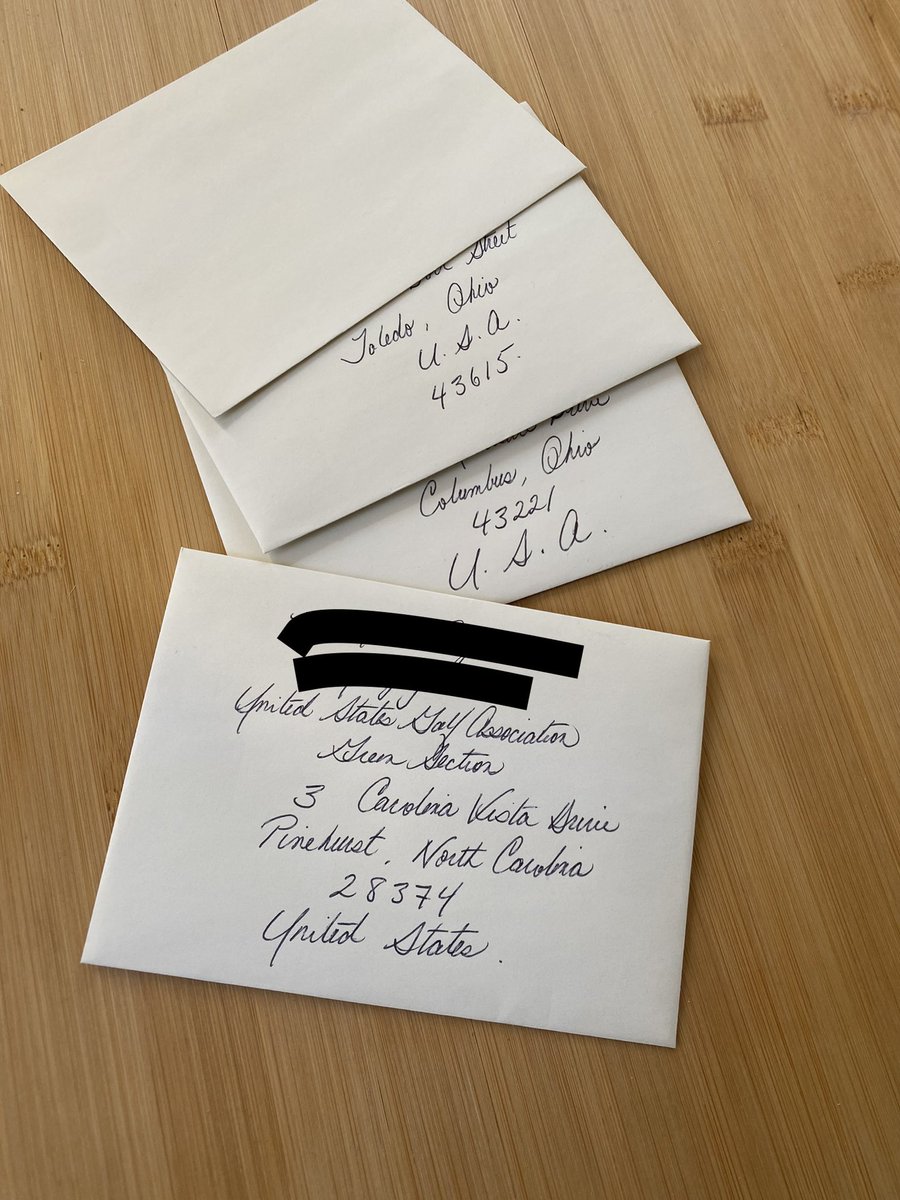 Street
Toledo, Ohio
U.S.A.
43615.
Drive
Columbus, Ohio
43221
U.S.A.
United States Golf Association
Green Section
3 Carolina Vista Drive
Pinehurst, North Carolina
28374
United States.